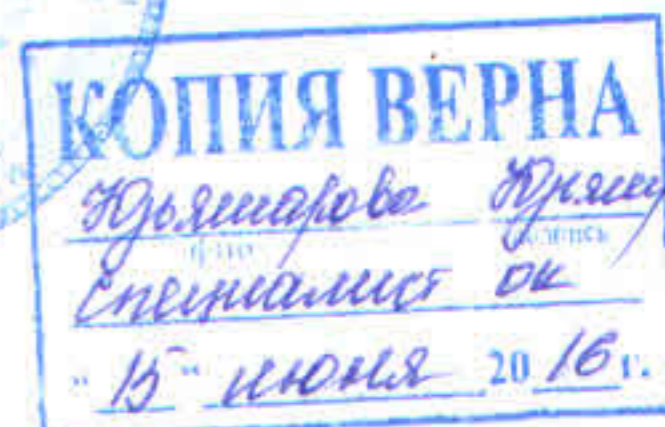 КОПИЯ ВЕРНА
Юльяшарова
ф и о подпись
специалист ок
" 15 " июня 20 16 г.